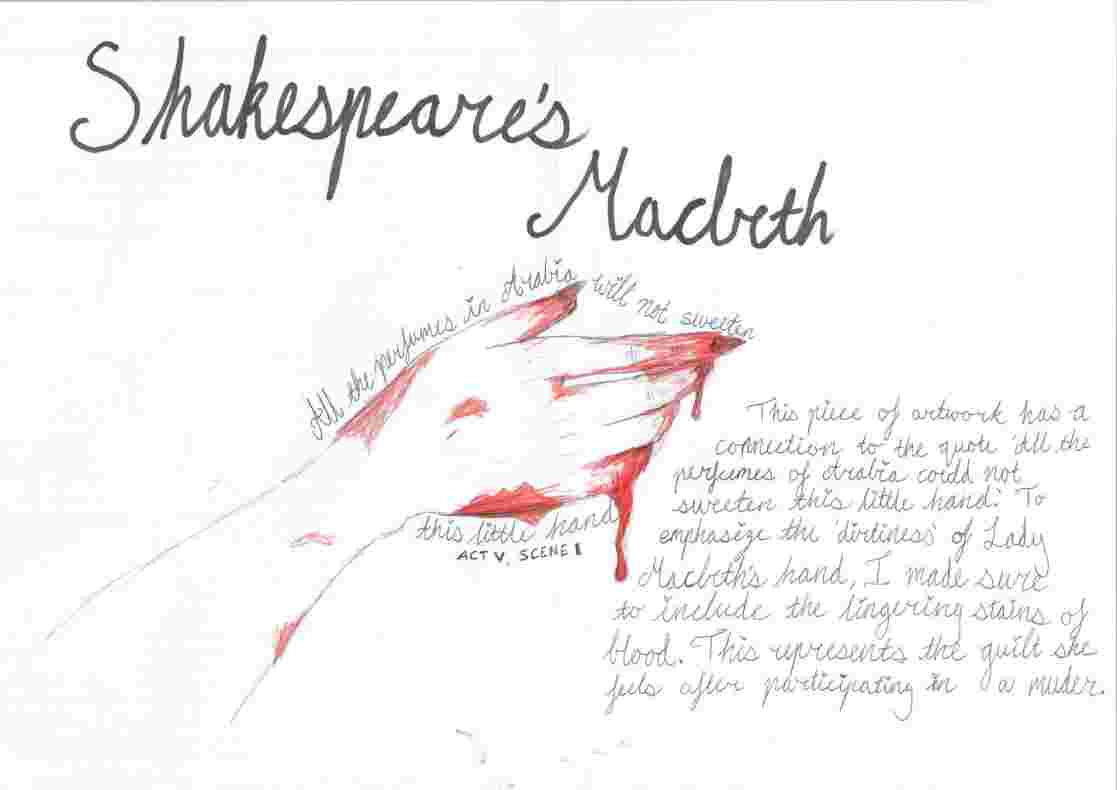 Shakespeare's
Macbeth
All the perfumes in Arabia will not sweeten
this little hand
ACT V, SCENE I
This piece of artwork has a
connection to the quote 'All the
perfumes of Arabia could not
sweeten this little hand.' To
emphasize the 'dirtiness' of Lady
Macbeth's hand, I made sure
to include the lingering stains of
blood. This represents the guilt she
feels after participating in a muder.